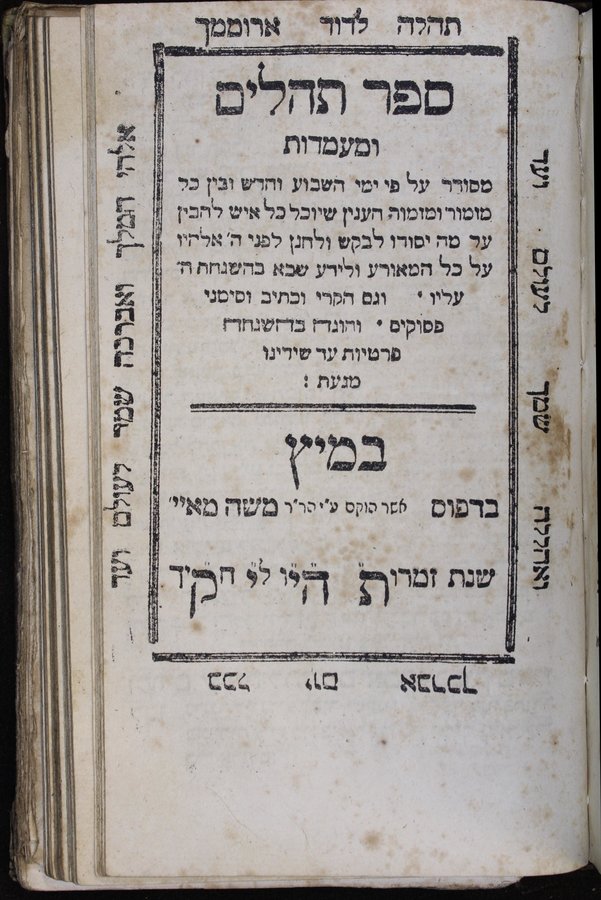 תהלה לדוד ארוממך
אלהי המלך ואברכה שמך לעולם ועד
בכל יום אברכך
ואהללה שמך לעולם ועד
ספר תהלים
ומעמדות
מסודר על פי ימי השבוע וחדש ובין כל
מזמור ומזמור הענין שיוכל כל איש להבין
על מה יסודו לבקש ולחנן לפני ה' אלהיו
על כל המאורע ולידע שבא בהשגחת ה'
עליו · וגם הקרי וכתיב וסימני
פסוקים · והוגה בהשגחה
פרטיות עד שידינו
מגעת :
במיץ
בדפוס אשר הוקם ע"י הר"ר משה מאיי'
שנת זמרות היו לי חקיך